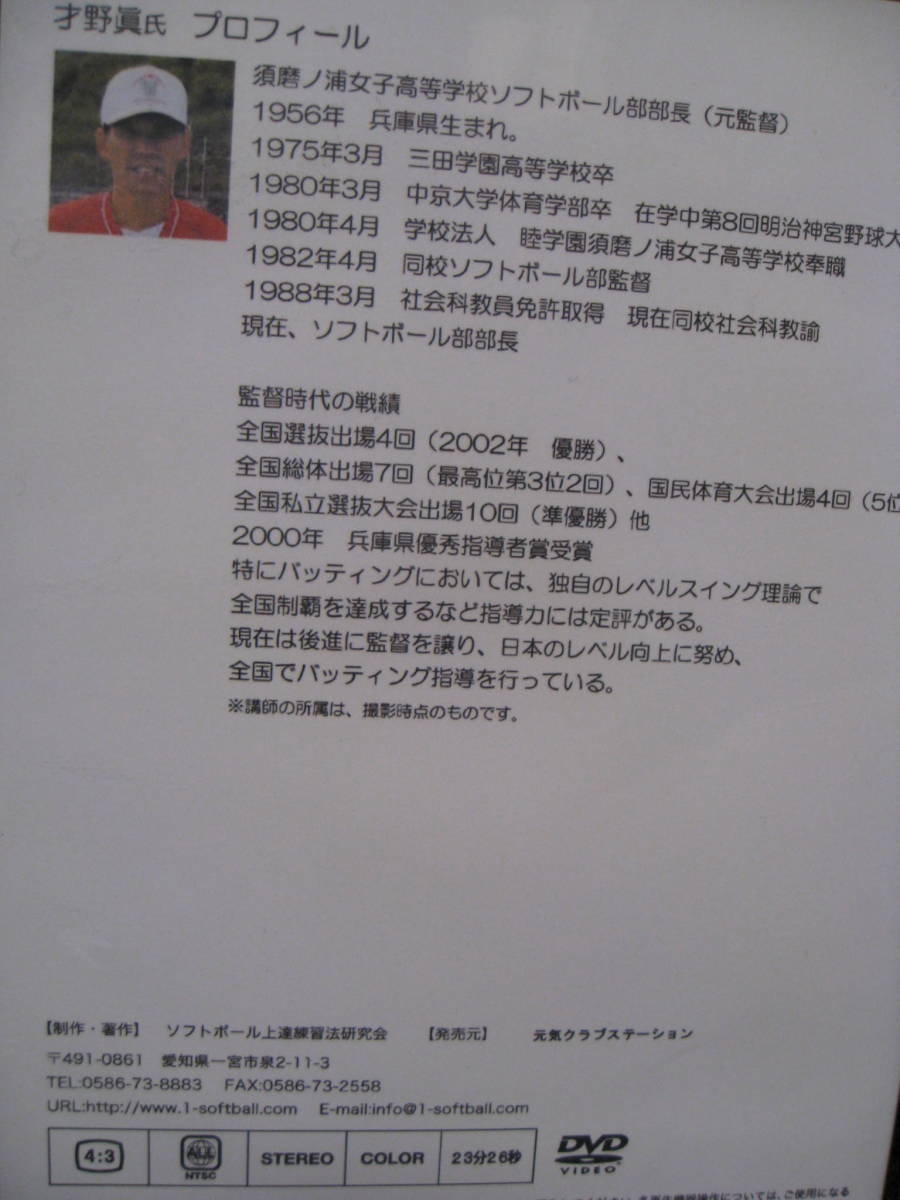 才野眞氏 プロフィール
須磨ノ浦女子高等学校ソフトボール部部長(元監督)
1956年 兵庫県生まれ。
1975年3月 三田学園高等学校卒
1980年3月 中京大学体育学部卒 在学中第8回明治神宮野球大
1980年4月 学校法人 睦学園須磨ノ浦女子高等学校奉職
1982年4月 同校ソフトボール部監督
1988年3月 社会科教員免許取得 現在同校社会科教諭
現在、ソフトボール部部長
監督時代の戦績
全国選抜出場4回(2002年 優勝)、
全国総体出場7回(最高位第3位2回)、国民体育大会出場4回(5位
全国私立選抜大会出場10回(準優勝)他
2000年 兵庫県優秀指導者賞受賞
特にバッティングにおいては、独自のレベルスイング理論で
全国制覇を達成するなど指導力には定評がある。
現在は後進に監督を譲り、日本のレベル向上に努め、
全国でバッティング指導を行っている。
※講師の所属は、撮影時点のものです。
【制作・著作】 ソフトボール上達練習法研究会 【発売元】 元気クラブステーション
〒491-0861 愛知県一宮市泉2-11-3
TEL:0586-73-8883 FAX:0586-73-2558
URL:http://www.1-softball.com E-mail:info@1-softball.com
4:3 ALL NTSC STEREO COLOR 23分26秒 DVD VIDEO
については、ご使用になる